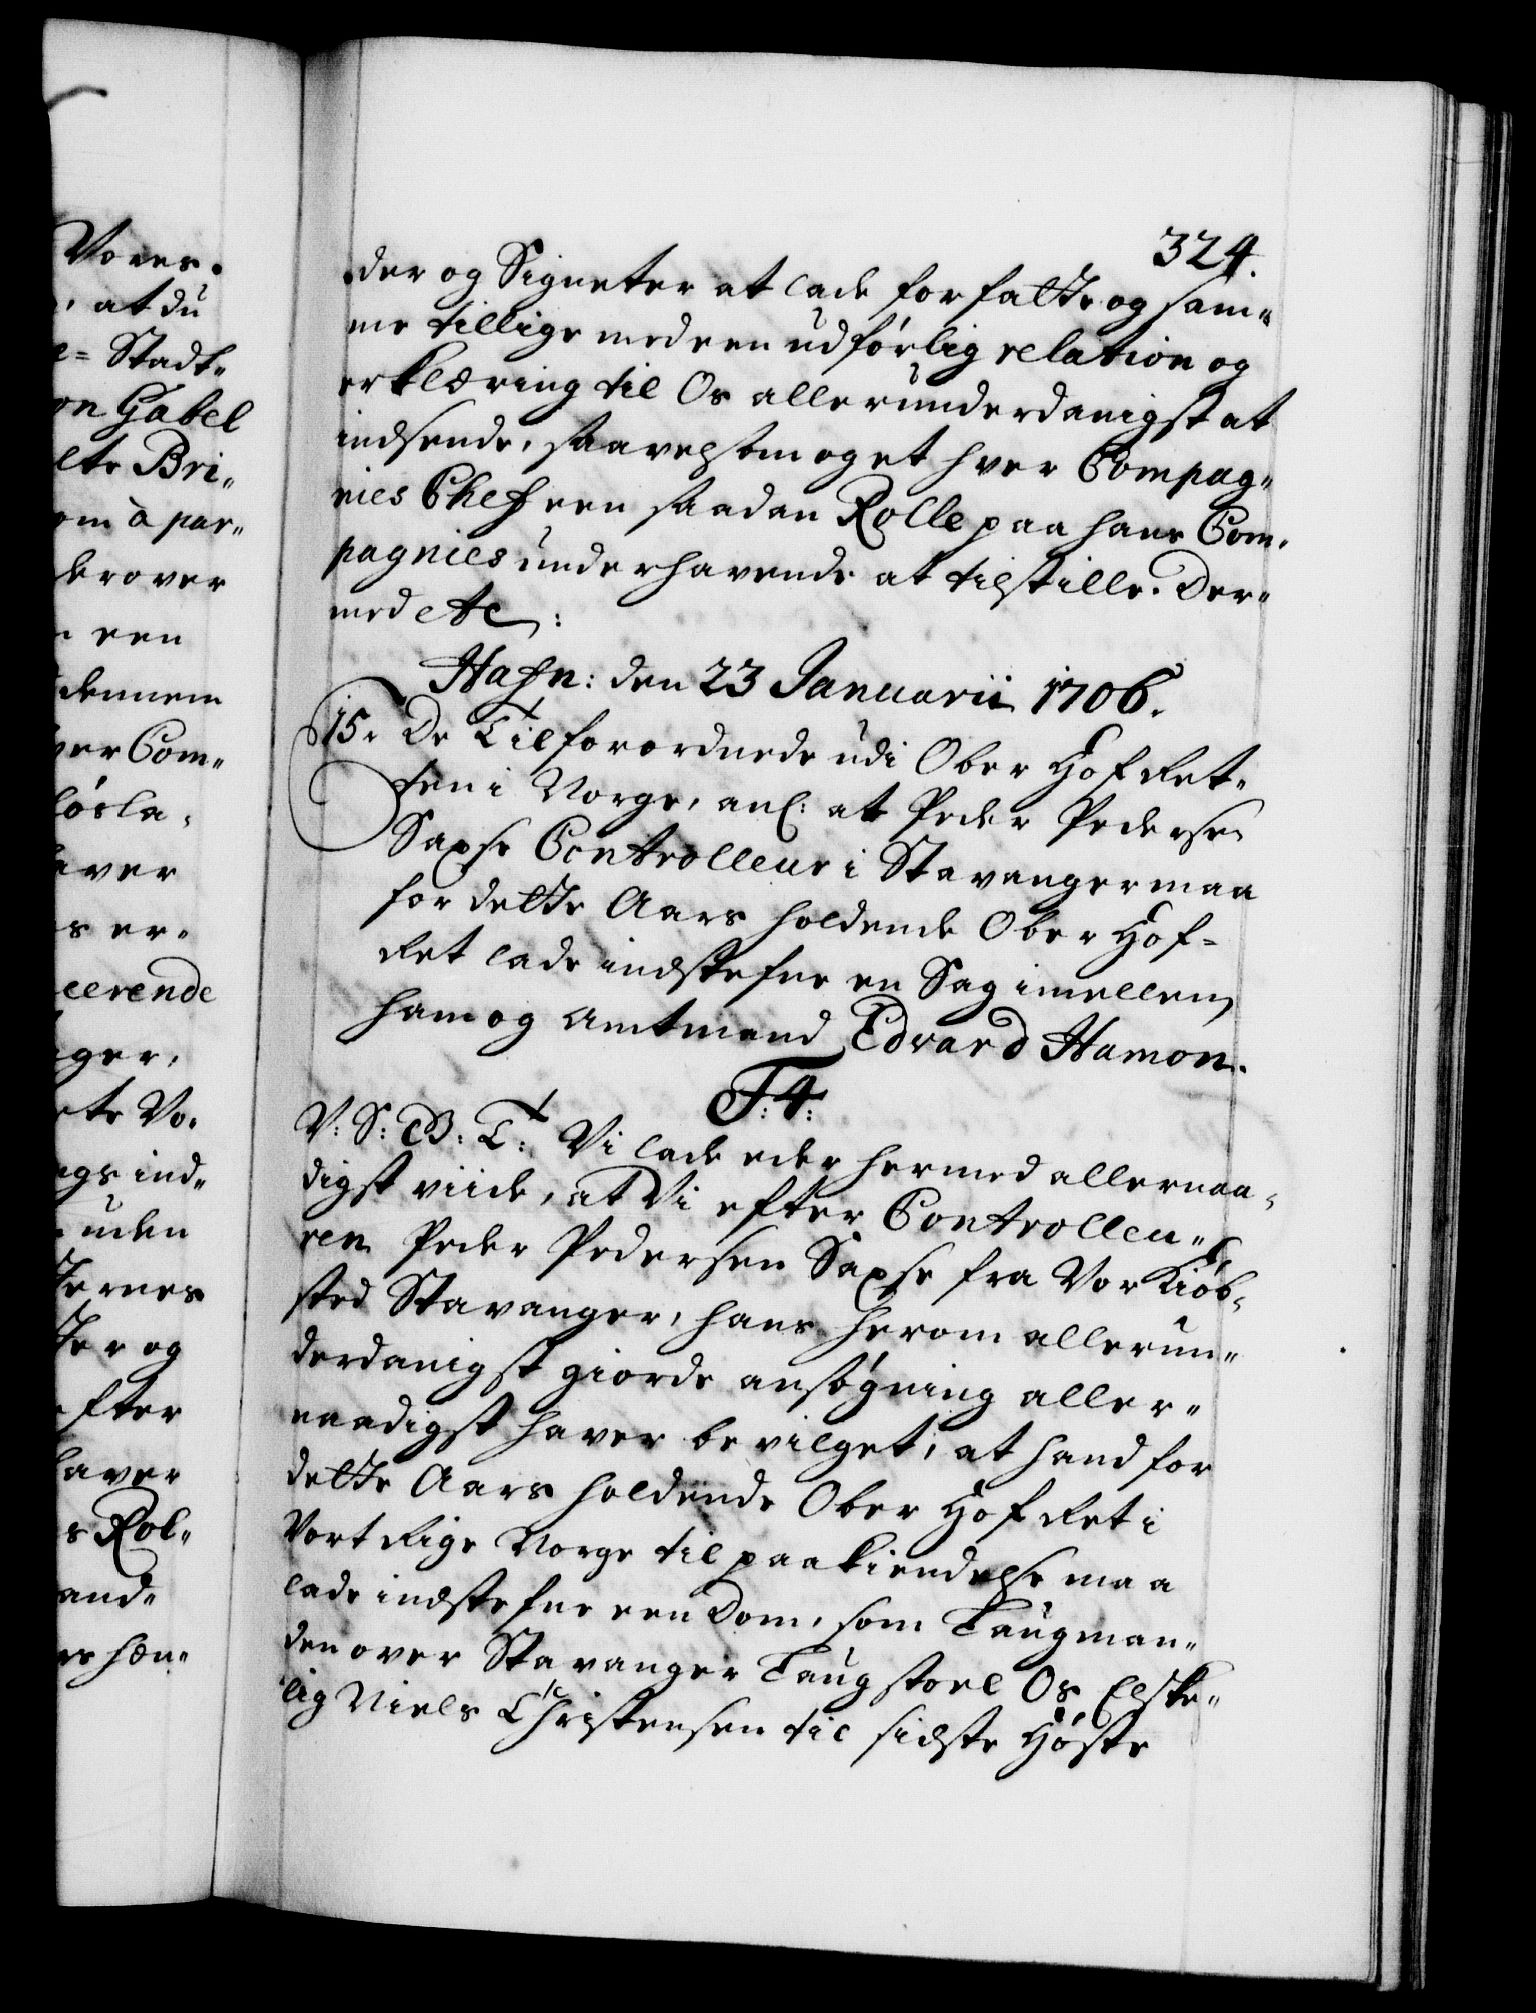 Vores.
, at du
e= Stadt-
on Gabel
lte Bri„
om à par„
derover
een
dennem
ver Com„
lösla,
aver
s er„
ceerende
ger,
ete Vo,
ngs ind„
uden
ternes
ter og
efter
haver
s Rol„
and„
rs hæn„
324.
der og Signeter at lade forfatte og sam„
me tillige med een udførlig relation og
erklæring til Os allerunderdanigst at
indsende, saavelsom og et hver Compag„
nies Chef een saadan Rolle paa hans Com„
pagnies underhavende at tilstille. Der„
med etc:
Hafn: den 23 Januarii 1706.
15. De Tilforordnede udi Ober Hof Ret„
ten i Norge, anl: at Peder Pedersen
Saxse Controlleur i Stavanger maa
for dette Aars holdende Ober Hof=
Ret lade indstefne en Sag imellem
ham og Amtmand Edvard Hamon.
F:4:
V: S: G: T: Vi lade eder hermed allernaa„
digst viide, at Vi efter Controlleu„
ren Peder Pedersen Saxse fra Vor Kiøb„
sted Stavanger, hans herom allerun„
derdanigst giorde ansøgning aller„
naadigst haver bevilget, at hand for
dette Aars holdende Ober Hof Ret i
Vort Rige Norge til paakiendelse maa
lade indstefne een Dom, som Laugman„
den over Stavanger Laugstoel Os Elske„
lig Niels Christensen til sidste Høste